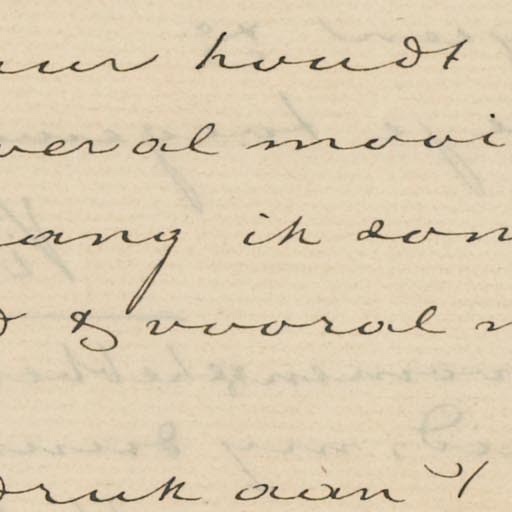 uur houdt
veral mooi
ang ik son
& vooral
druk aan